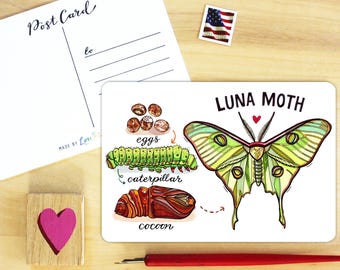 Post Card
to
MADE BY
LUNA MOTH
eggs
caterpillar
cocoon